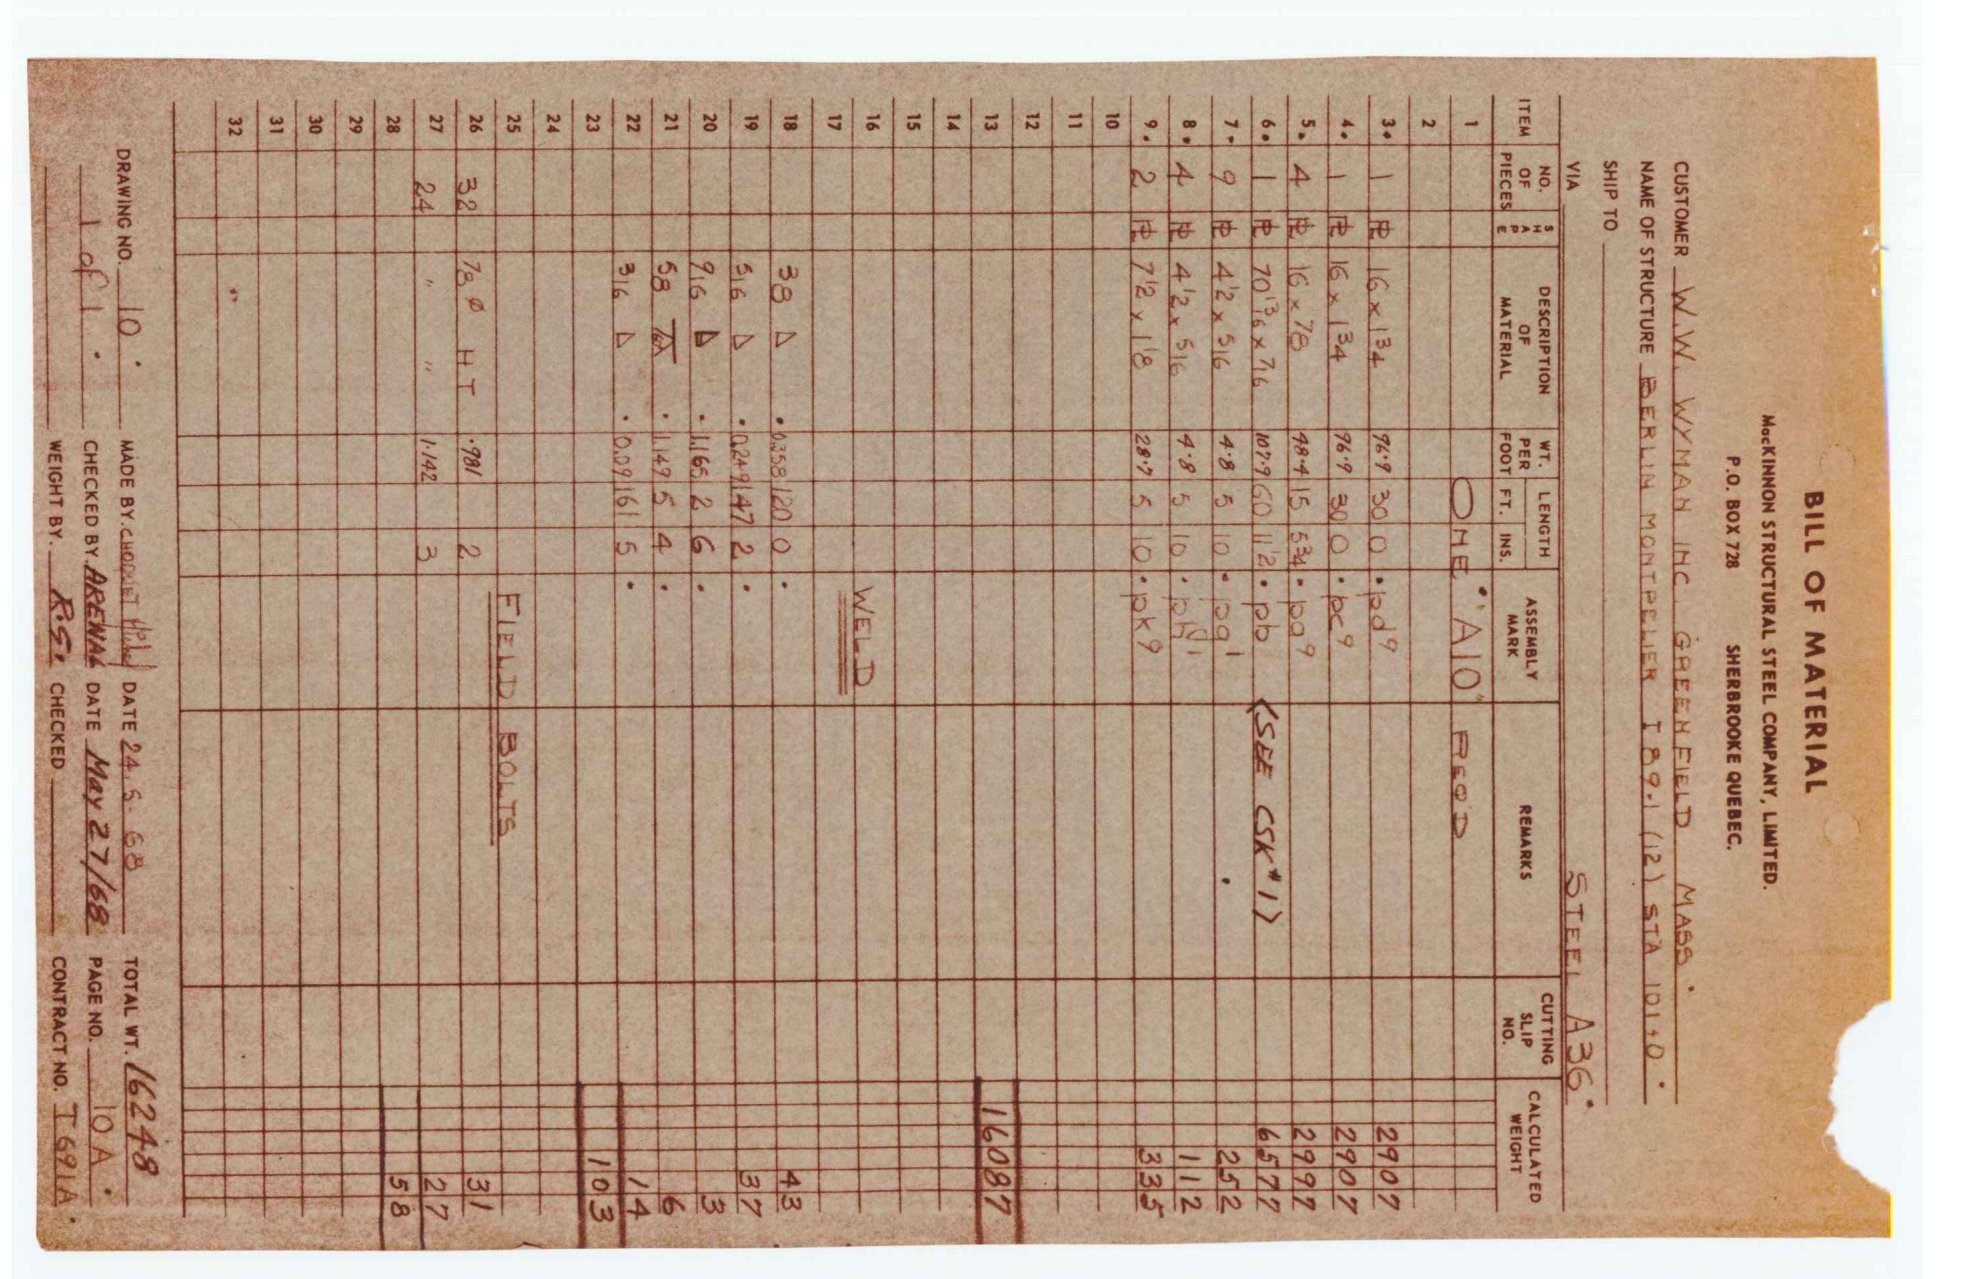 BILL OF MATERIAL
MacKINNON STRUCTURAL STEEL COMPANY, LIMITED.
P.O. BOX 728 SHERBROOKE QUEBEC.
CUSTOMER W.W. WYMAN INC. GREENFIELD MASS.
NAME OF STRUCTURE BERLIN MONTPELIER I 89-1 (12) STA 101+0.
SHIP TO
VIA STEEL A36.
ITEM NO. OF PIECES SHAPE DESCRIPTION OF MATERIAL WT. PER FOOT LENGTH FT. INS. ASSEMBLY MARK REMARKS CUTTING SLIP NO. CALCULATED WEIGHT
1 ONE "A10" REQ'D
2
3. 1 PL 16 x 1 3/4 96.9 30 0 . pd9 2907
4. 1 PL 16 x 1 3/4 96.9 30 0 . pc9 2907
5. 4 PL 16 x 7/8 48.4 15 5 3/4 . pa9 2997
6. 1 PL 70 13/16 x 7/16 107.9 60 11 1/2 . pb (SEE CSK #1) 6577
7. 9 PL 4 1/2 x 5/16 4.8 5 10 . pg1 252
8. 4 PL 4 1/2 x 5/16 4.8 5 10 . 112
9. 2 PL 7 1/2 x 1 1/8 28.7 5 10 . pk9 335
10
11
12
13 16087
14
15
16 WELD
17
18 3/8 . 0.358 120 0 . 43
19 5/16 . 0.249 147 2 . 37
20 9/16 . 1.165 2 6 . 3
21 5/8 . 1.149 5 4 . 6
22 3/16 . 0.091 61 5 . 14
23 103
24
25 FIELD BOLTS
26 32 7/8 ø HT .981 2 31
27 24 " " 1.142 3 27
28 58
29
30
31
32
DRAWING NO. 10. MADE BY. DATE 24.5.68 TOTAL WT. 16248
1 of 1. CHECKED BY. ARENAL DATE May 27/68 PAGE NO. 10A.
WEIGHT BY. R.S. CHECKED CONTRACT NO. T 691A.